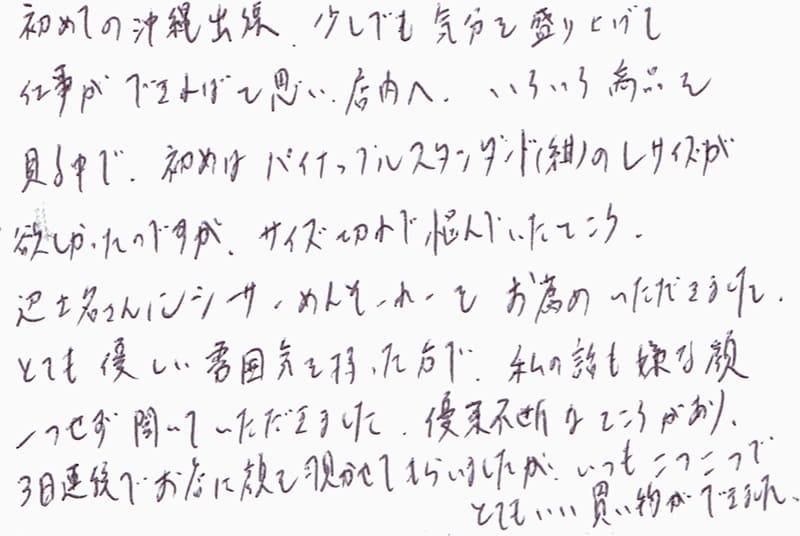 初めての沖縄出張、少しでも気分を盛り上げて
仕事ができればと思い、店内へ。いろいろ商品を
見る中で、初めは パイナップルスタンダード(紺)のLサイズが
欲しかったのですが、サイズ切れで悩んでいたところ、
辺土名さんにシーサーめんそーれーを お薦めいただきました。
とても優しい雰囲気を持った方で、私の話も嫌な顔
一つせず聞いていただきました。優柔不断なところがあり、
3日連続でお店に顔を覗かせてもらいましたが、いつもニコニコで
とてもいい買い物ができました。